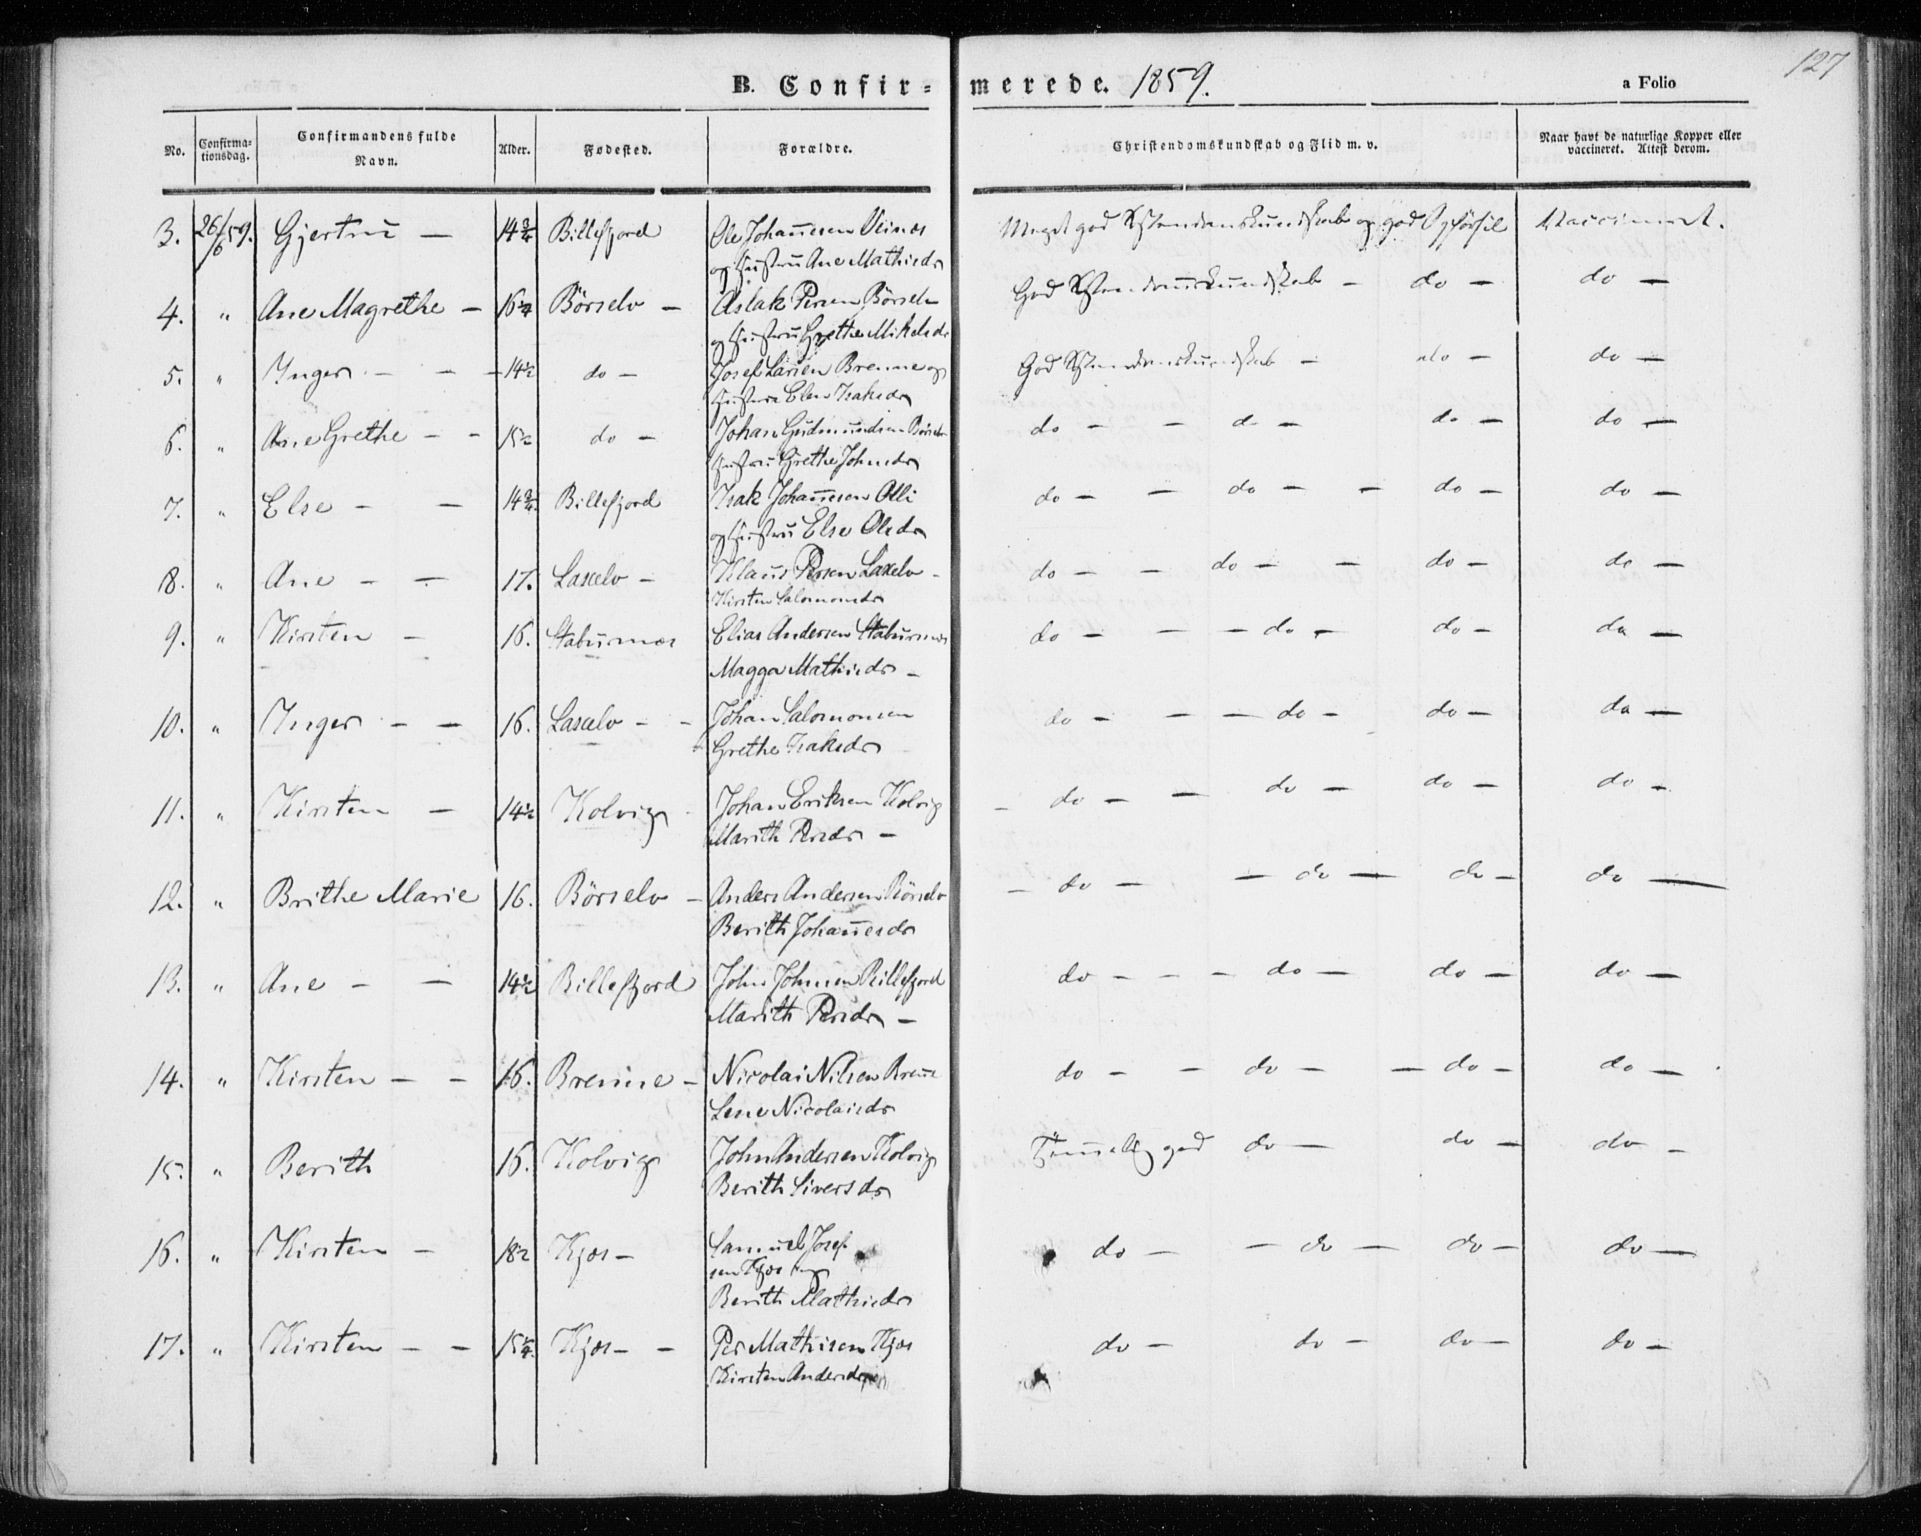 127
B. Confir- merede. 1859.
a Folio
No.
Confirma-
tionsdag.
Confirmandens fulde
Navn.
Alder.
Fødested.
Forældre.
Christendomskundskab og Flid m. v.
Naar havt de naturlige Kopper eller
vaccineret. Attest derom.
3. 26/6 59. Gjertru — 14¾ Billefjord Ole Johannesen Meget god Kristendomskundskab og god Opførsel Vaccineret.
og Hustru Ane Mathisdr
4. " Ane Magrethe — 16½ Börselv — Aslak Persen Börselv God Kristendomskundskab — do — do —
og Hustru Grethe Mikelsdr
5. " Inger — — 14½ do — Josef Larsen Brenne og God Kristendomskundskab — do — do —
Hustru Elen Isaksdr
6. " Ane Grethe — — 15½ do — Johan Gudmundsen Börselv do — — do — do — do —
Hustru Grethe Johnsdr
7. " Else — — 14¾ Billefjord Isak Johannesen Olli do — — do — — do — do —
og Hustru Else Olsdr
8. " Ane — — 17. Laxelv — Klaus Persen Laxelv — do — — do — — do — do —
Kirsten Salomonsdr
9. " Kirsten — 16. Staburnæs Elias Andersen Staburnæs do — — — do — do — do —
Magga Mathisdr —
10. " Inger — — 16. Laxelv — — Johan Salomonsen do — — — do — do — do —
Grethe Isaksdr
11. " Kirsten — 14½ Kolvig Johan Eriksen Kolvig — do — — do — do — do —
Marith Persdr —
12. " Brithe Marie 16. Börselv — Anders Andersen Börselv — do — — do — do — do —
Berith Johannesdr
13. " Ane — — 14½ Billefjord John Johnsen Billefjord do — — — do — do — do —
Marith Persdr —
14. " Kirsten — — 16. Brenne — Nicolai Nilsen Brenne do — — do — — do — do —
Lene Nicolaisdr
15. " Berith 16. Kolvig John Andersen Kolvig Temmelig god do — do — do —
Berith Siversdr
16. " Kirsten — 18½ Kjæs — Samuel Josef- do — — do — do — do —
sen Kjæs og
Berith Mathisdr
17. " Kirsten — — 15¼ Kjæs — — Per Mathisen Kjæs do — do — do — do —
Kirsten Andersdr